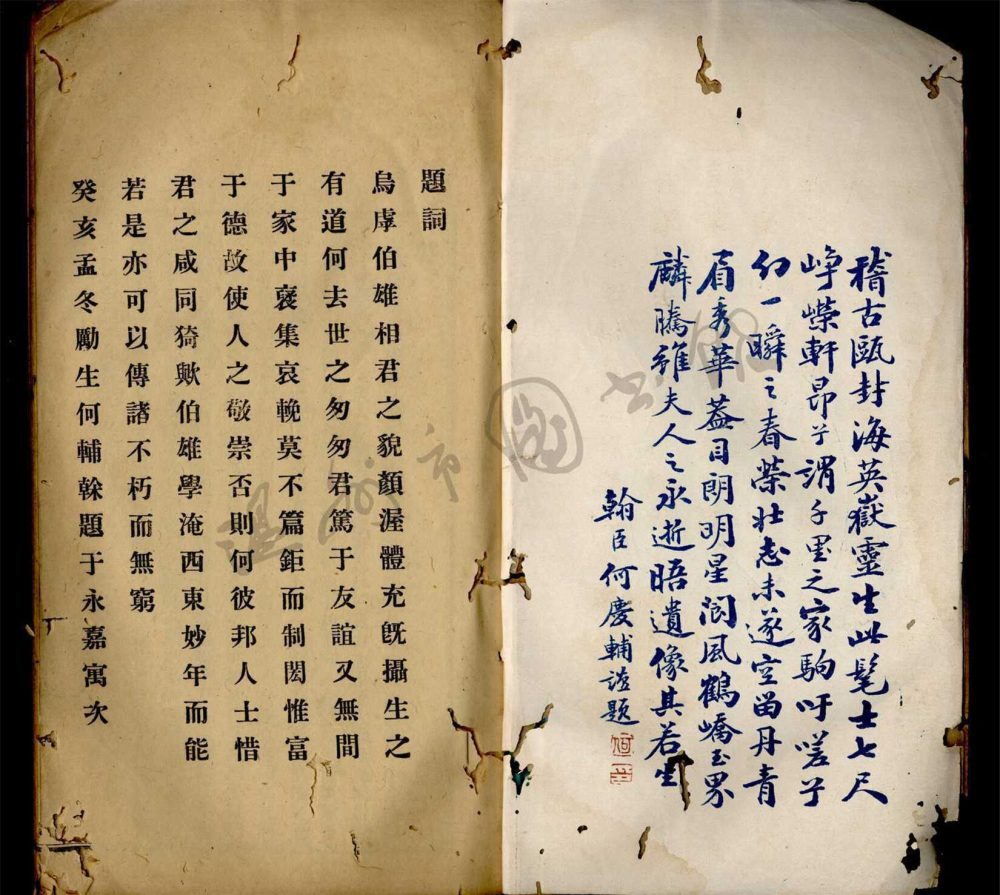 稽古甌封海英嶽靈生此髦士七尺
崢嶸軒昂兮謂千里之家駒吁嗟兮
幻一瞬之春榮壯志未遂空留丹青
眉秀華蓋目朗明星閬風鶴嶠玉界
麟騰雖夫人之永逝晤遺像其若生
翰臣何慶輔謹題
題詞
烏虖伯雄相君之貌顏渥體充旣攝生之
有道何去世之匆匆君篤于友誼又無間
于家中裒集哀輓莫不篇鉅而制閎惟富
于德故使人之敬崇否則何彼邦人士惜
君之咸同猗歟伯雄學淹西東妙年而能
若是亦可以傳諸不朽而無窮
癸亥孟冬勵生何輔榦題于永嘉寓次